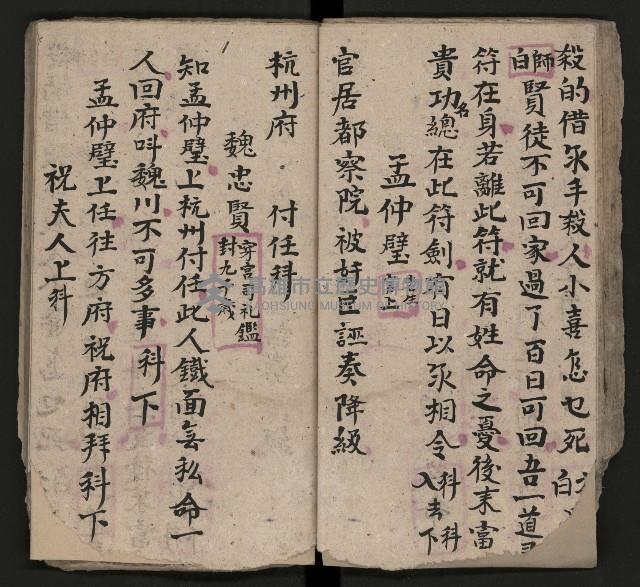 殺的借永手殺人小喜怎乜死 白
師白賢徒不可回家過了百日可回吾一道
符在身若離此符就有姓命之憂後末富
貴功名總在此符劍百日以永相令 科 科入去下
孟仲璧 上
官居都察院被奸臣誣奏降級
杭州府 付任科
魏忠賢 司礼鑑封九歲
知孟仲璧上杭州付任此人鐵面无私命一
人回府叫魏川不可多事 科下
孟仲璧上任往方府祝府相拜科下
祝夫人上科
高雄市立歷史博物館
KAOHSIUNG MUSEUM OF HISTORY